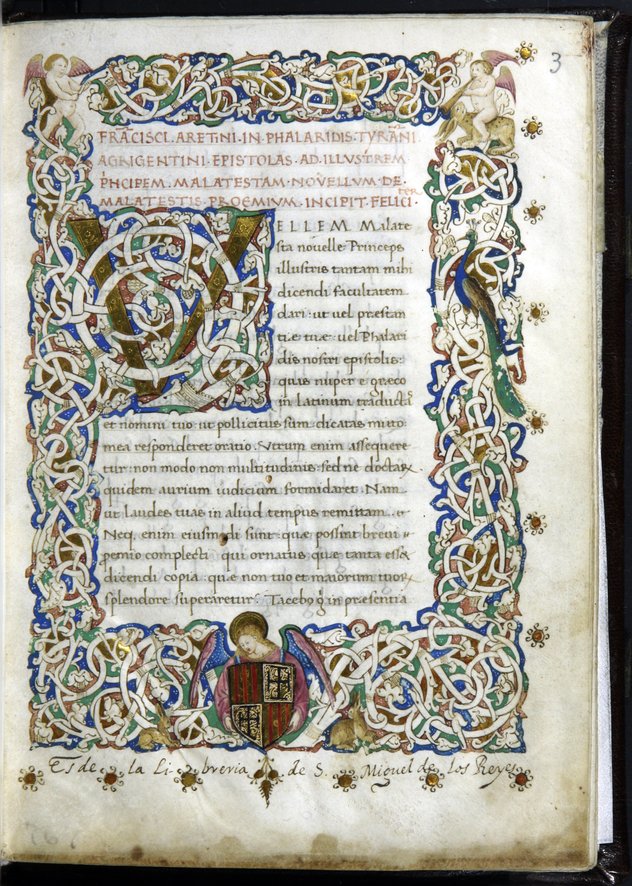 3
FRÃCISCI. ARETINI. IN. PHALARIDIS. TYRÃNI.
AGRIGENTINI. EPISTOLAS. AD. ILLUSTREM
PNCIPEM. MALATESTAM. NOVELLUM. DE.
MALATESTIS. PROEMIUM. INCIPIT. FELICITER
VELLEM Malate
sta novelle Princeps
illustris tantam mihi
dicendi facultatem
dari: ut vel præstan
tiæ tuæ: vel Phalari
dis nostri epistolis:
quas nuper e græco
in latinum traductas
et nomini tuo ut pollicitus sum dicatas mutuo
mea responderet oratio. Utrum enim assequere
tur: non modo non multitudinis sed ne doctaꝝ
quidem aurium iudicium formidaret. Nam
ut laudes tuas in aliud tempus remittam. et
Neq, enim eiusmodi sunt: quæ possint brevi
complecti qui ornatus: quæ tanta esse
dicendi copia: quæ non tuo et maiorum tuoꝝ
splendore superaretur? Tacebo in præsentia
Es de la Libreria de S. Miguel de los Reyes